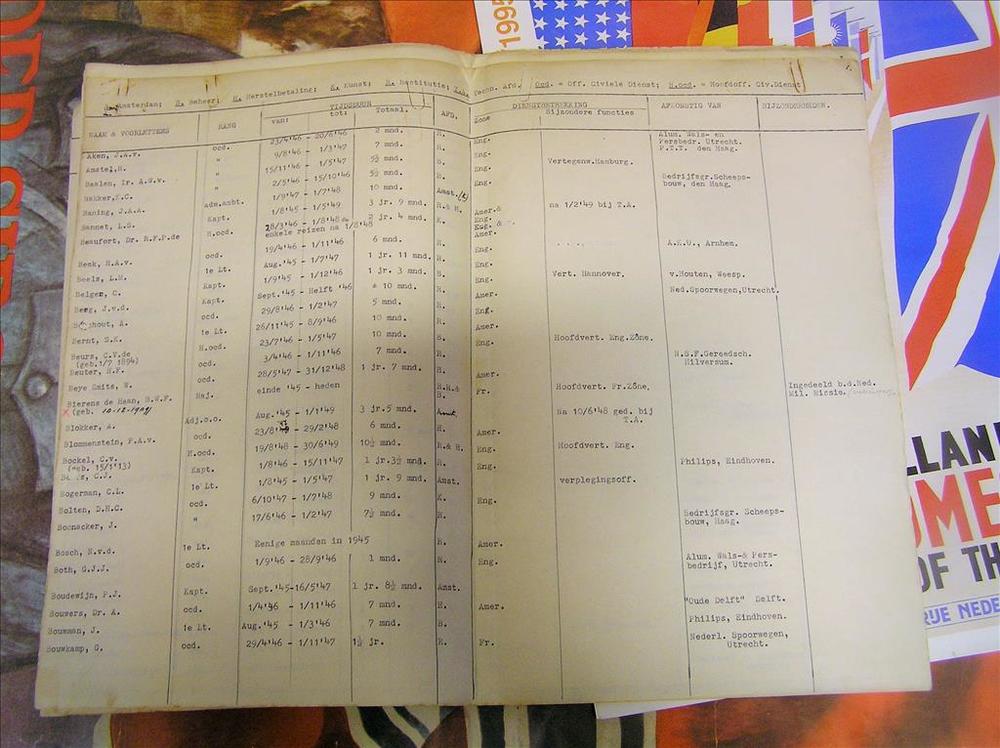 A. Amsterdam; B. Beheer; H. Herstelbetaling; K. Kunst; R. Restitutie; T.A. Techn. Afd.; Ocd. = Off. Civiele Dienst; H.ocd = Hoofdoff. Civ.Dienst
1.
NAAM & VOORLETTERS RANG TIJDSDUUR van: tot: Totaal. AFD. DIENSTBETREKKING Zone Bijzondere functies AFKOMSTIG VAN BIJZONDERHEDEN.
Aken, J.A.v. ocd. 23/4'46 - 20/6'46 2 mnd. R. Eng. Alum. Wals- en
Persbedr. Utrecht.
Amstel, H. " 9/8'46 - 1/3'47 7 mnd. R. Eng. P.T.T. den Haag.
Baalen, Ir. A.G.v. " 15/11'46 - 1/5'47 5½ mnd. R. Eng. Vertegenw.Hamburg.
Bakker, K.C. " 2/5'46 - 15/10'46 5½ mnd. R. Eng. Bedrijfsgr.Scheeps-
bouw, den Haag.
Baning, J.A.A. adm.ambt. 1/9'47 - 1/7'48 10 mnd. Amst.
Bannet, L.S. Kapt. 1/8'45 - 1/5'49 3 jr. 9 mnd. R.& H. Amer.& Eng. na 1/2'49 bij T.A.
Beaufort, Dr. R.F.P.de H.ocd. 28/3'46 - 1/8'48 en 2 jr. 4 mnd. K. Eng. & Amer.
enkele reizen na 1/8'48
Benk, H.A.v. ocd. 19/4'46 - 1/11'46 6 mnd. R. Eng. A.K.U., Arnhem.
Beels, L.M. 1e Lt. Aug.'45 - 1/7'47 1 jr. 11 mnd. B. Eng.
Belger, C. Kapt. 1/9'45 - 1/12'46 1 jr. 3 mnd. B. Eng. Vert. Hannover. v.Houten, Weesp.
Berg, J.v.d. Kapt. Sept.'45 - Helft '46 ± 10 mnd. R. Amer. Ned.Spoorwegen,Utrecht.
ocd. 29/8'46 - 1/2'47 5 mnd. R. Eng.
Bernt, S.K. 1e Lt. 26/11'45 - 8/9'46 10 mnd. R. Amer.
Beurs, C.V.de H.ocd. 23/7'46 - 1/5'47 10 mnd. B. Eng. Hoofdvert. Eng.Zône.
(geb.1/7 1894)
Beuter, H.F. ocd. 3/4'46 - 1/11'46 7 mnd. R. N.S.F.Gereedsch.
Hilversum.
Beye Smits, W. ocd. 28/5'47 - 31/12'48 1 jr. 7 mnd. R. Amer.
Bierens de Haan, B.W.F. Maj. einde '45 - heden R.H.& B. Fr. Hoofdvert. Fr.Zône, Ingedeeld b.d.Ned.
Mil. Missie.
x (geb. 10-12-1904)
Blokker, A. Adj.o.o. Aug.'45 - 1/1'49 3 jr.5 mnd. Amst. Na 10/6'48 ged. bij
T.A.
Blommenstein, P.A.v. ocd. 23/8' - 29/2'48 6 mnd. R. Amer.
Bockel, C.v. H.ocd. 19/8'48 - 30/6'49 10½ mnd. R.& H. Hoofdvert. Eng.
(geb. 15/1'13)
C.J. Kapt. 1/8'46 - 15/11'47 1 jr.3½ mnd. R. Eng. Philips, Eindhoven.
Bogerman, C.L. 1e Lt. 1/8'45 - 1/5'47 1 jr. 9 mnd. Amst. verplegingsoff.
Bolten, D.H.G. ocd. 6/10'47 - 1/7'48 9 mnd. K. Eng.
Boonacker, J. " 17/6'46 - 1/2'47 7½ mnd. R. Bedrijfsgr. Scheeps-
bouw, Haag.
Bosch, N.v.d. 1e Lt. Eenige maanden in 1945 R. Amer.
Both, G.J.J. ocd. 1/9'46 - 28/9'46 1 mnd. R. Eng. Alum. Wals-& Pers-
bedrijf, Utrecht.
Boudewijn, P.J. Kapt. Sept.'45-16/5'47 1 jr. 8½ mnd. Amst.
Bouwers, Dr. A. ocd. 1/4'46 - 1/11'46 7 mnd. R. Amer. "Oude Delft" Delft.
Bouwman, J. 1e Lt. Aug.'45 - 1/3'46 7 mnd. B. Philips, Eindhoven.
Bouwkamp, G. ocd. 29/4'46 - 1/11'47 1½ jr. R. Fr. Nederl. Spoorwegen,
Utrecht.
1995
LLAN
OME
OF TH
RIJE NEDE